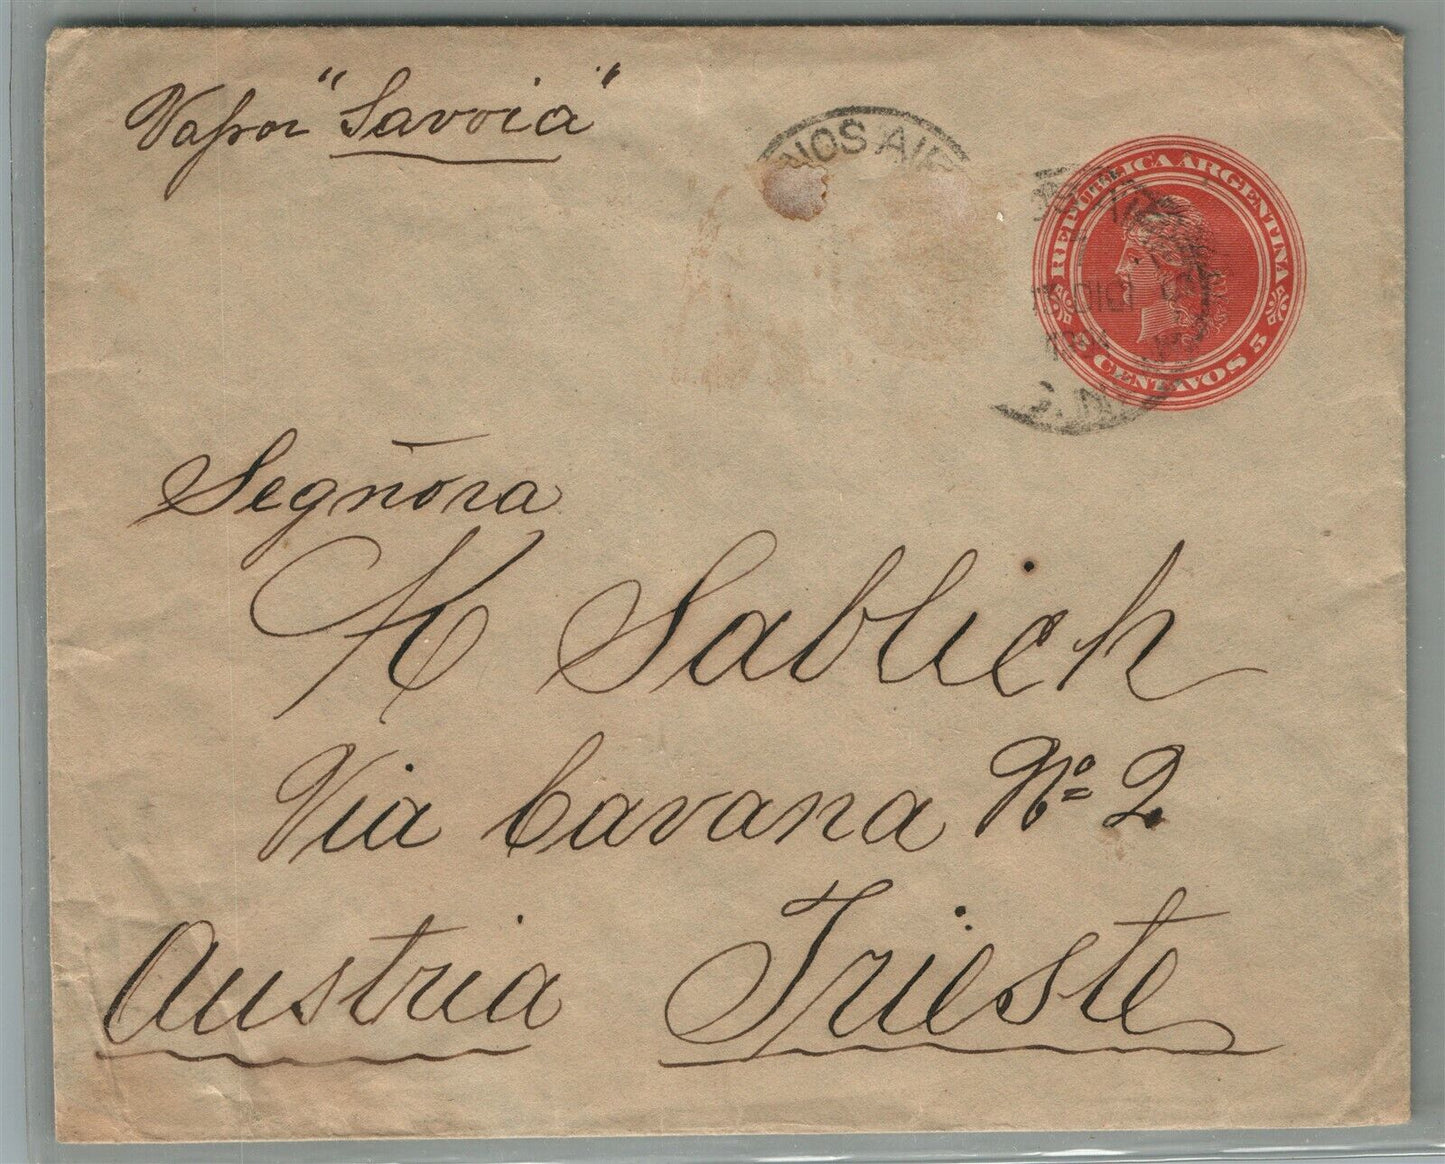 Vapor "Savoia"
NOS AIR
REPUBLICA ARGENTINA
5 CENTAVOS 5
Segñora
A Sablich
Via Cavana Nº 2
Austria Trieste